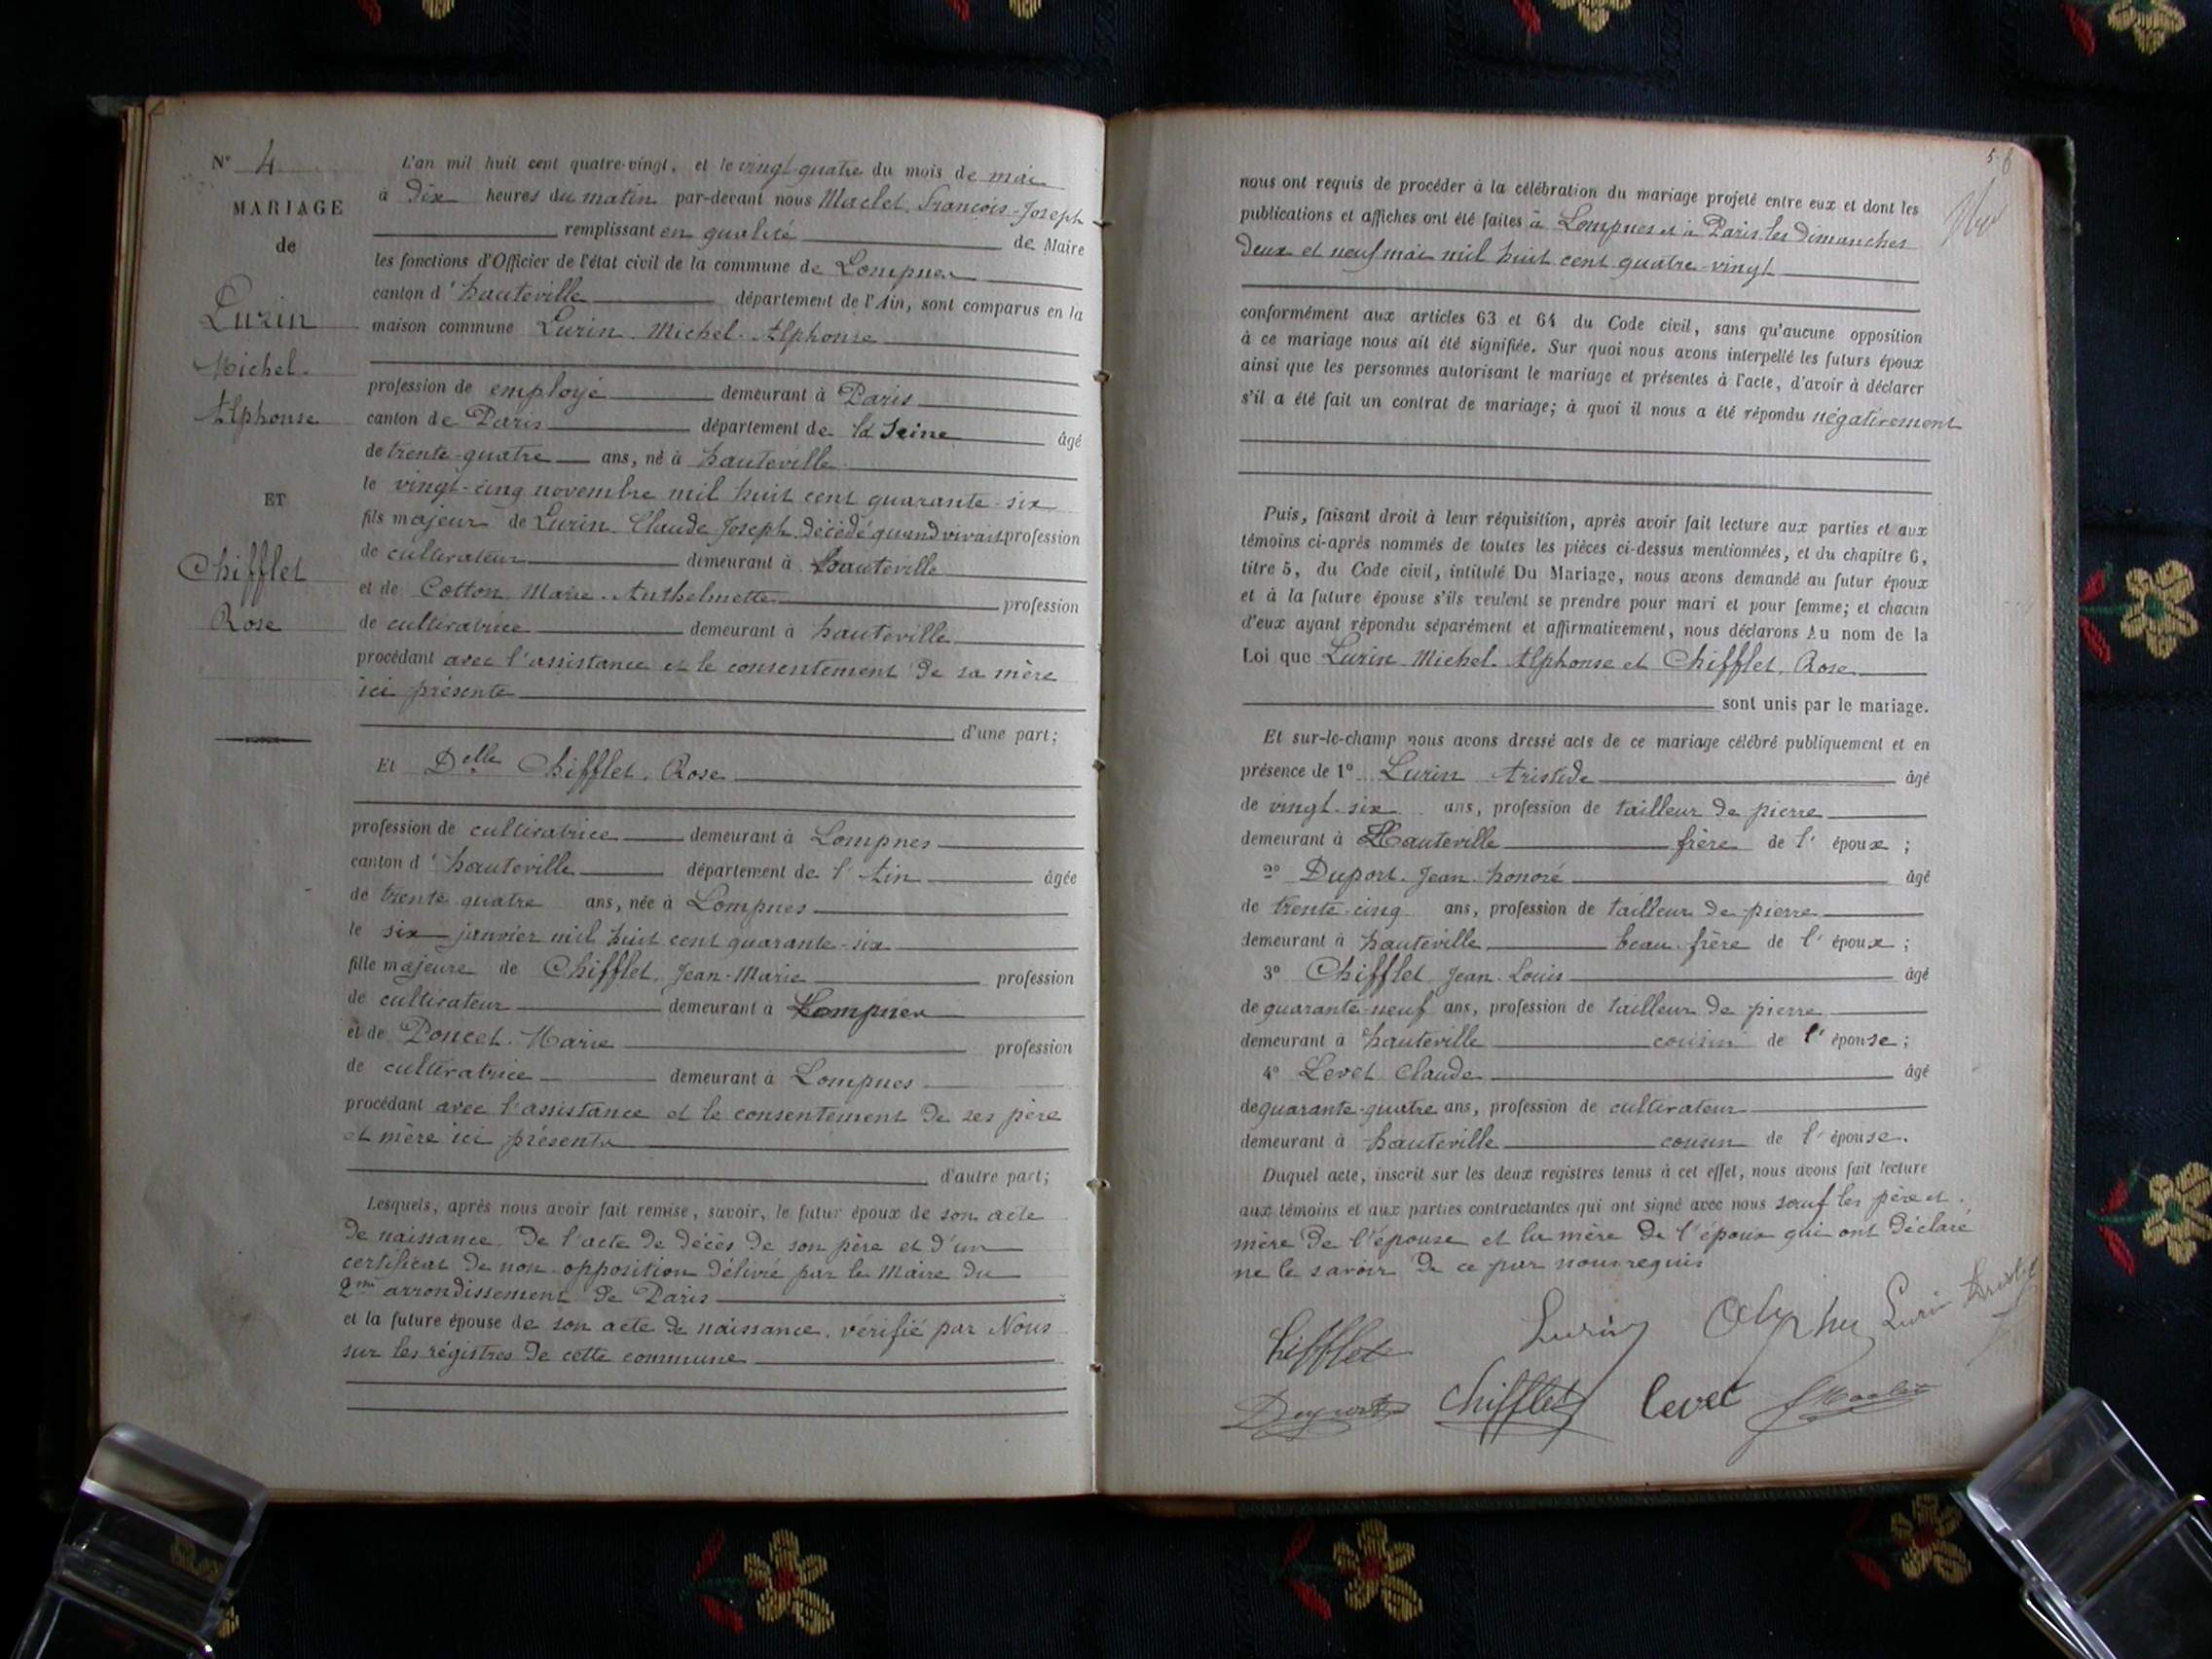 Nº 4
MARIAGE
de
Lurin
Michel.
Alphonse
ET
Chifflet
Rose
L'an mil huit cent quatre-vingt, et le vingt-quatre du mois de mai
à dix heures du matin par-devant nous Maclet, François-Joseph
remplissant en qualité de Maire
les fonctions d'Officier de l'état civil de la commune de Lompnes
canton d'hauteville département de l'Ain, sont comparus en la
maison commune Lurin. Michel. Alphonse
profession de employé demeurant à Paris
canton de Paris département de la Seine âgé
de trente-quatre ans, né à hauteville
le vingt-cinq novembre mil huit cent quarante-six
fils majeur de Lurin. Claude Joseph. décédé quand vivait profession
de cultivateur demeurant à hauteville
et de Cotton. Marie. Anthelmette profession
de cultivatrice demeurant à hauteville
procédant avec l'assistance et le consentement de sa mère
ici présente
d'une part;
Et Delle Chifflet. Rose
profession de cultivatrice demeurant à Lompnes
canton d'hauteville département de l'Ain âgée
de trente quatre ans, née à Lompnes
le six janvier mil huit cent quarante-six
fille majeure de Chifflet, Jean-Marie profession
de cultivateur demeurant à Lompnes
et de Poncet. Marie profession
de cultivatrice demeurant à Lompnes
procédant avec l'assistance et le consentement de ses père
et mère ici présents
d'autre part;
Lesquels, après nous avoir fait remise, savoir, le futur époux de son acte
de naissance. De l'acte de décès de son père et d'un
certificat de non-opposition délivré par le Maire du
2me arrondissement de Paris
et la future épouse de son acte de naissance. vérifié par Nous
sur les régistres de cette commune
5
nous ont requis de procéder à la célébration du mariage projeté entre eux et dont les
publications et affiches ont été faites à Lompnes et à Paris les dimanches
deux et neuf mai mil huit cent quatre-vingt
conformément aux articles 63 et 64 du Code civil, sans qu'aucune opposition
à ce mariage nous ait été signifiée. Sur quoi nous avons interpellé les futurs époux
ainsi que les personnes autorisant le mariage et présentes à l'acte, d'avoir à déclarer
s'il a été fait un contrat de mariage; à quoi il nous a été répondu négativement
Puis, faisant droit à leur réquisition, après avoir fait lecture aux parties et aux
témoins ci-après nommés de toutes les pièces ci-dessus mentionnées, et du chapitre 6,
titre 5, du Code civil, intitulé Du Mariage, nous avons demandé au futur époux
et à la future épouse s'ils veulent se prendre pour mari et pour femme; et chacun
d'eux ayant répondu séparément et affirmativement, nous déclarons Au nom de la
Loi que Lurin Michel. Alphonse et Chifflet, Rose
sont unis par le mariage.
Et sur-le-champ nous avons dressé acte de ce mariage célébré publiquement et en
présence de 1º Lurin Aristide âgé
de vingt-six ans, profession de tailleur de pierre
demeurant à Hauteville frère de l'époux;
2º Duport. Jean-honoré âgé
de trente-cinq ans, profession de tailleur de pierre
demeurant à hauteville beau-frère de l'époux;
3º Chifflet Jean-Louis âgé
de quarante-neuf ans, profession de tailleur de pierre
demeurant à hauteville cousin de l'épouse;
4º Levet Claude âgé
de quarante-quatre ans, profession de cultivateur
demeurant à hauteville cousin de l'épouse.
Duquel acte, inscrit sur les deux registres tenus à cet effet, nous avons fait lecture
aux témoins et aux parties contractantes qui ont signé avec nous sauf les père et
mère de l'épouse et la mère de l'époux qui ont déclaré
ne le savoir de ce par nous requis
Chifflet Lurin Lurin Aristide
Duport Chifflet Levet Maclet